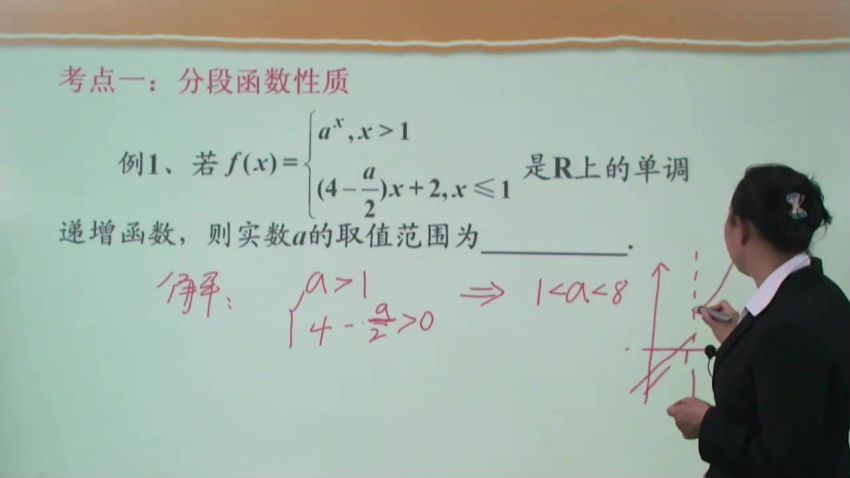 考点一：分段函数性质
例1、若 f(x)={ a^x, x>1
(4-a/2)x+2, x≤1 是R上的单调
递增函数，则实数a的取值范围为________.
解： { a>1
4-a/2>0 ⇒ 1<a<8